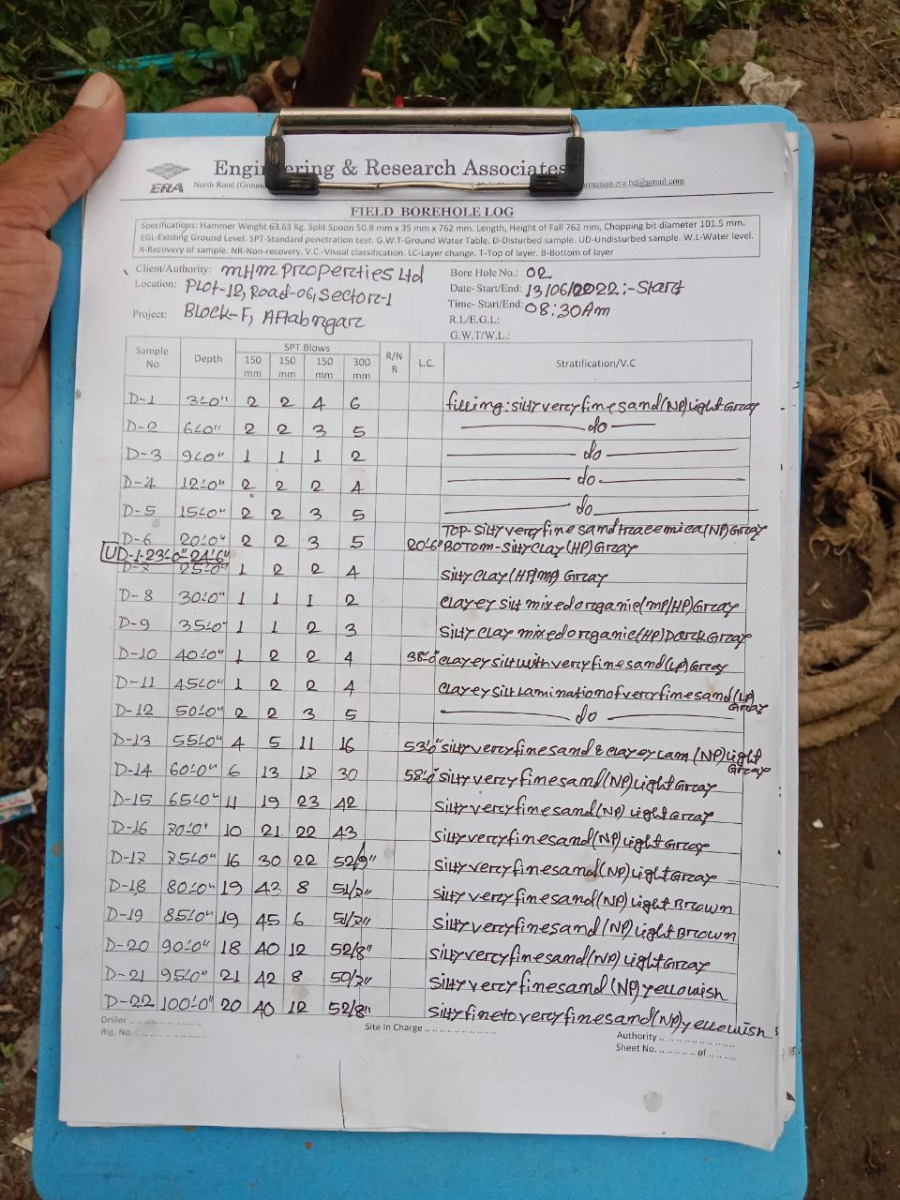 Engineering & Research Associates
ERA
North Road (Groun
rmation.era.bd@gmail.com
FIELD BOREHOLE LOG
Specifications: Hammer Weight 63.63 Kg. Split Spoon 50.8 mm x 35 mm x 762 mm. Length, Height of Fall 762 mm, Chopping bit diameter 101.5 mm.
EGL-Existing Ground Level. SPT-Standard penetration test. G.W.T-Ground Water Table. D-Disturbed sample. UD-Undisturbed sample. W.L-Water level.
R-Recovery of sample. NR-Non-recovery. V.C.-Visual classification. LC-Layer change. T-Top of layer. B-Bottom of layer
Client/Authority: MHM Properties Ltd Bore Hole No.: 02
Location: Plot-12, Road-06, Sector-1 Date- Start/End: 13/06/2022:-Start
Project: Block-F, Aftabngar Time- Start/End: 08:30Am
R.L/E.G.L:
G.W.T/W.L.:
Sample No Depth SPT Blows 150 mm 150 mm 150 mm 300 mm R/N R L.C. Stratification/V.C
D-1 3'-0" 2 2 4 6 filling: silty very fine sand (NP) Light Gray
D-2 6'-0" 2 2 3 5 do
D-3 9'-0" 1 1 1 2 do
D-4 12'-0" 2 2 2 4 do
D-5 15'-0" 2 2 3 5 do
D-6 20'-0" 2 2 3 5 Top-silty very fine sand trace mica (NP) Gray
20'-6" Botom-silty clay (HP) Gray
UD-1-23'-0"-24'-6"
D-7 25'-0" 1 2 2 4 silty clay (HP/MP) Gray
D-8 30'-0" 1 1 1 2 clayey silt mixed organic (MP/HP) Gray
D-9 35'-0" 1 1 2 3 silty clay mixed organic (HP) Dark Gray
D-10 40'-0" 1 2 2 4 38'-0" clayey silt with very fine sand (LP) Gray
D-11 45'-0" 1 2 2 4 clayey silt lamination of very fine sand (LP) Gray
D-12 50'-0" 2 2 3 5 do
D-13 55'-0" 4 5 11 16 53'-0" silty very fine sand & clayey lam (NP) Light Gray
D-14 60'-0" 6 13 17 30 58'-0" silty very fine sand (NP) Light Gray
D-15 65'-0" 11 19 23 42 silty very fine sand (NP) Light Gray
D-16 70'-0" 10 21 22 43 silty very fine sand (NP) Light Gray
D-17 75'-0" 16 30 22 52/9" silty very fine sand (NP) Light Gray
D-18 80'-0" 19 43 8 51/7" silty very fine sand (NP) Light Brown
D-19 85'-0" 19 45 6 51/7" silty very fine sand (NP) Light Brown
D-20 90'-0" 18 40 12 52/8" silty very fine sand (NP) Light Gray
D-21 95'-0" 21 42 8 50/7" silty very fine sand (NP) yellowish
D-22 100'-0" 20 40 12 52/8" silty fine to very fine sand (NP) yellowish
Driller
Rig. No.
Site in Charge
Authority
Sheet No. of